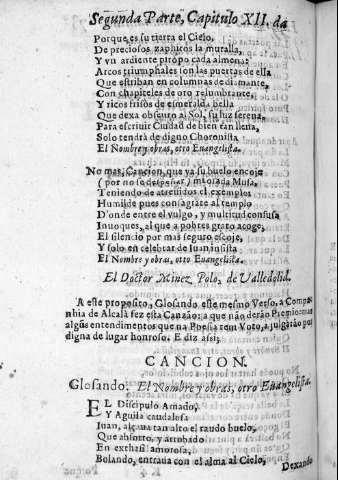 Segunda Parte, Capitulo XII. da
Porque es su tierra el Cielo,
De preciosos zaphiros la muralla,
Y vn ardiente piropo cada almena:
Arcos triumphales son las puertas de ella
Que estriban en columnas de diamante,
Con chapiteles de oro relumbrante,
Y ricos frisos de esmeralda bella
Que dexa obscuro al Sol, su luz serena,
Para escriuir Ciudad de bien tan llena,
Solo tendrà de digno Choronista.
El Nombre y obras, otro Euangelista.
No mas, Cancion, que ya su buelo encoje
(por no se despeñar) mi osada Musa,
Teniendo de atreuidos el exemplos
Humilde pues consagrate al templo
D'onde entre el vulgo, y multitud confusa
Inuoques, al que a pobres grato acoge;
El silencio por mas seguro escoje,
Y solo en celebrar de Iuan insista
El Nombre y obras, otro Euangelista.
El Doctor Minez Polo, de Valledolid.
A este proposito, Glosando este mesmo Verso, a Compa-
nhia de Alcalà fez esta Canzão: a que não derão Premio: mas
algũs entendimentos que na Poesia tem Voto, a julgarão por
digna de lugar honroso. E diz assi;
CANCION.
Glosando: El Nombre y obras, otro Euangelista.
EL Discipulo Amado,
Y Aguila caudalosa
Iuan, alçaua tan alto el raudo buelo,
Que absorto, y arrobado
En exthasi amorosa,
Bolando, entraua con el alma al Cielo,
Dexando